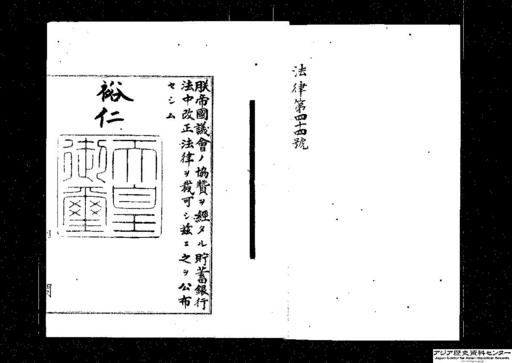 法律第四十四號
朕帝國議會ノ協贊ヲ經タル貯蓄銀行
法中改正法律ヲ裁可シ茲ニ之ヲ公布
セシム
裕仁
天皇
御璽
閣
アジア歴史資料センター
Japan Center for Asian Historical Records